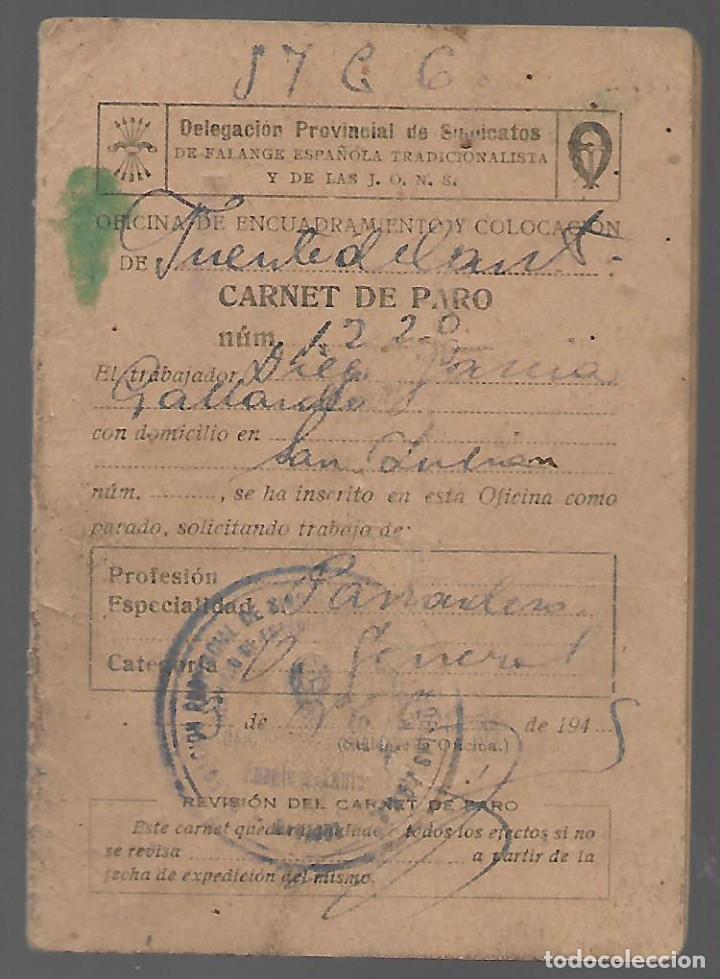 87 C C
Delegación Provincial de Sindicatos
DE FALANGE ESPAÑOLA TRADICIONALISTA
Y DE LAS J. O. N. S.
OFICINA DE ENCUADRAMIENTO Y COLOCACIÓN
DE Fuente del Cant.
CARNET DE PARO
núm. 1220
El trabajador Diego
Gallardo
con domicilio en
San
núm. , se ha inscrito en esta Oficina como
parado, solicitando trabajo de:
Profesión
Especialidad
Categoría General
de de 1945
(Sello de la Oficina.)
REVISIÓN DEL CARNET DE PARO
Este carnet quedará anulado a todos los efectos si no
se revisa a partir de la
fecha de expedición del mismo.
todocoleccion.net